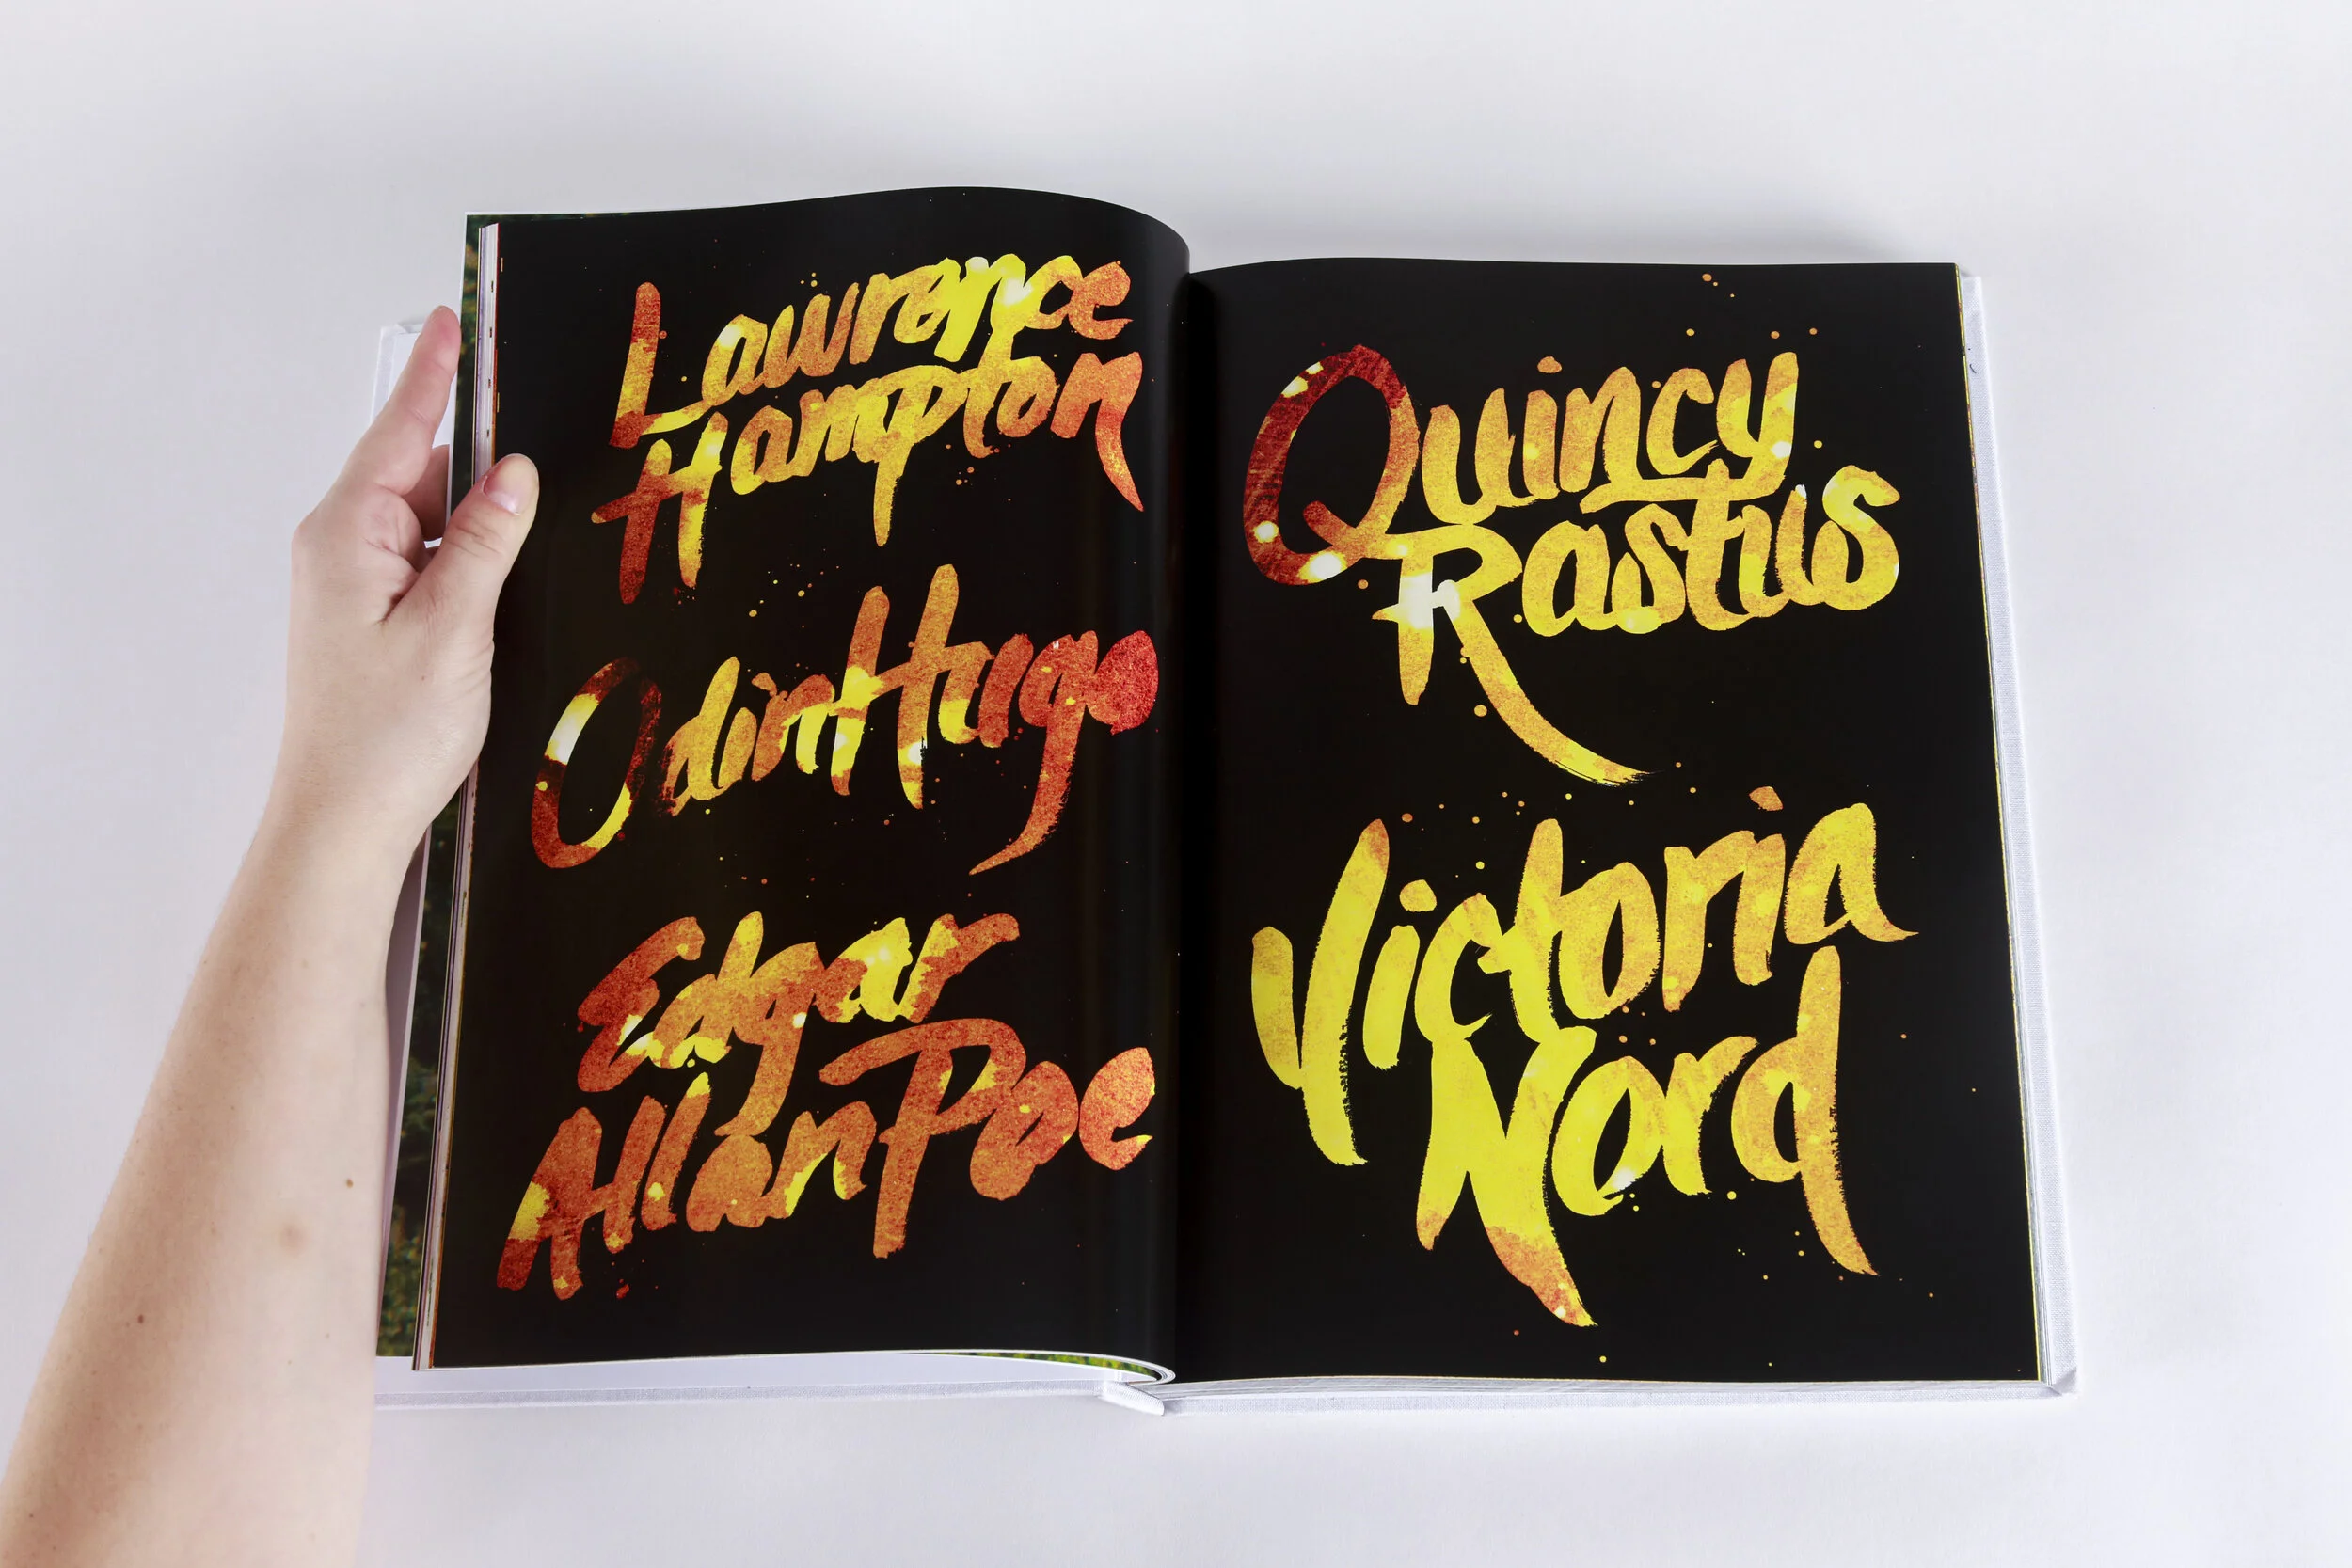 Lawrence
Hampton
Odin Hugo
Edgar
Allan Poe
Quincy
Rastus
Victoria
Nord